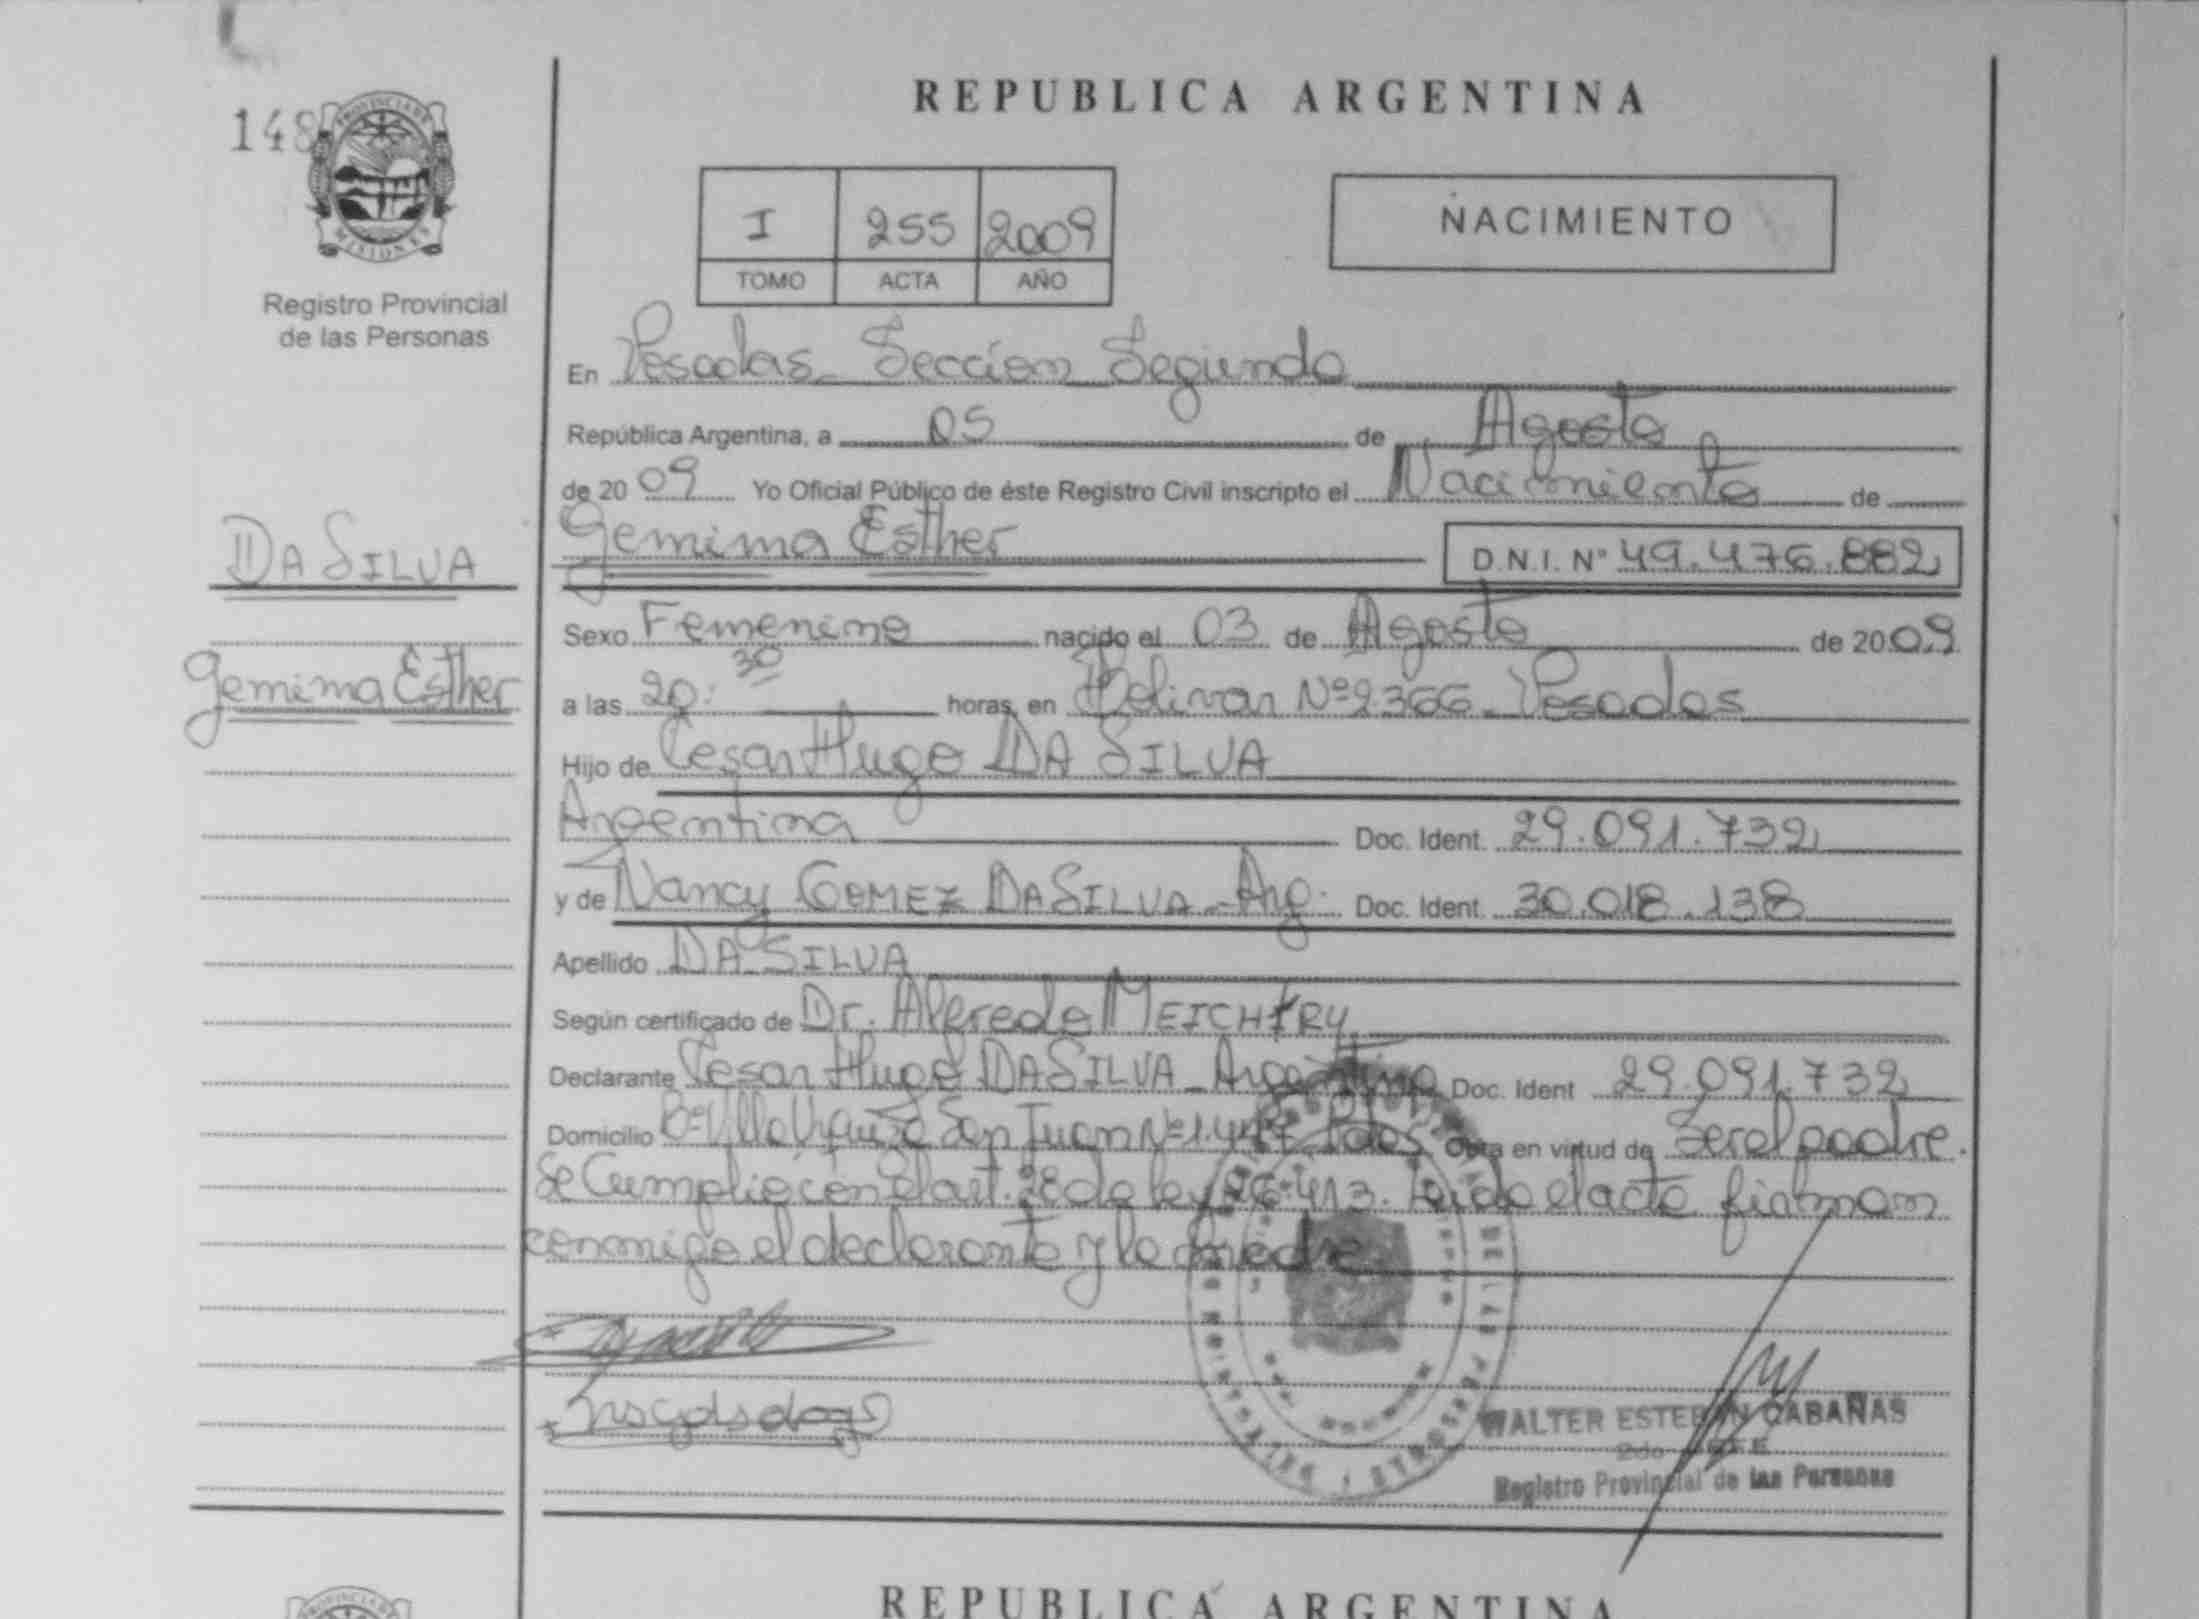 REPUBLICA ARGENTINA
148
PROVINCIA DE
MISIONES
Registro Provincial
de las Personas
I 255 2009
TOMO ACTA AÑO
NACIMIENTO
En Posadas Sección Segunda
República Argentina, a 05 de Agosto
de 2009 Yo Oficial Público de éste Registro Civil inscripto el Nacimiento de
DA SILVA
Gemima Esther D.N.I. Nº 49.476.882
Sexo Femenino nacido el 03 de Agosto de 2009
Gemima Esther
a las 20:30 horas, en Bolivar Nº 2366 - Posadas
Hijo de Cesar Hugo DA SILVA
Argentina Doc. Ident. 29.091.732
y de Nancy GOMEZ DA SILVA - Arg. Doc. Ident. 30.018.138
Apellido DA SILVA
Según certificado de Dr. Alfredo MEICHTRY
Declarante Cesar Hugo DA SILVA - Argentino Doc. Ident 29.091.732
Domicilio Bº Villa San Juan Nº Pdas. Obra en virtud de Ser el padre.
Se Cumplió con el art. 28 de ley 26.413. Leida el acta firman
conmigo el declarante y la madre
WALTER ESTEBAN CABAÑAS
2do JEFE
Registro Provincial de las Personas
REPUBLICA ARGENTINA